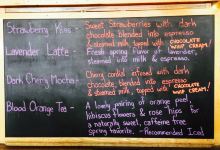 Strawberry Kiss - Sweet Strawberries with dark
chocolate blended into espresso
& steamed milk, topped with CHOCOLATE
WHIP CREAM!
Lavender Latte - Fresh spring flavor of lavender,
steamed into milk & espresso.
Dark Cherry Mocha - Cherry cordial infused with dark
chocolate blended into espresso
& steamed milk, topped with CHOCOLATE
WHIP CREAM!
Blood Orange Tea - A lovely pairing of orange peel,
hibiscus flowers & rose hips for
a naturally sweet, caffeine free
spring favorite. - Recommended Iced